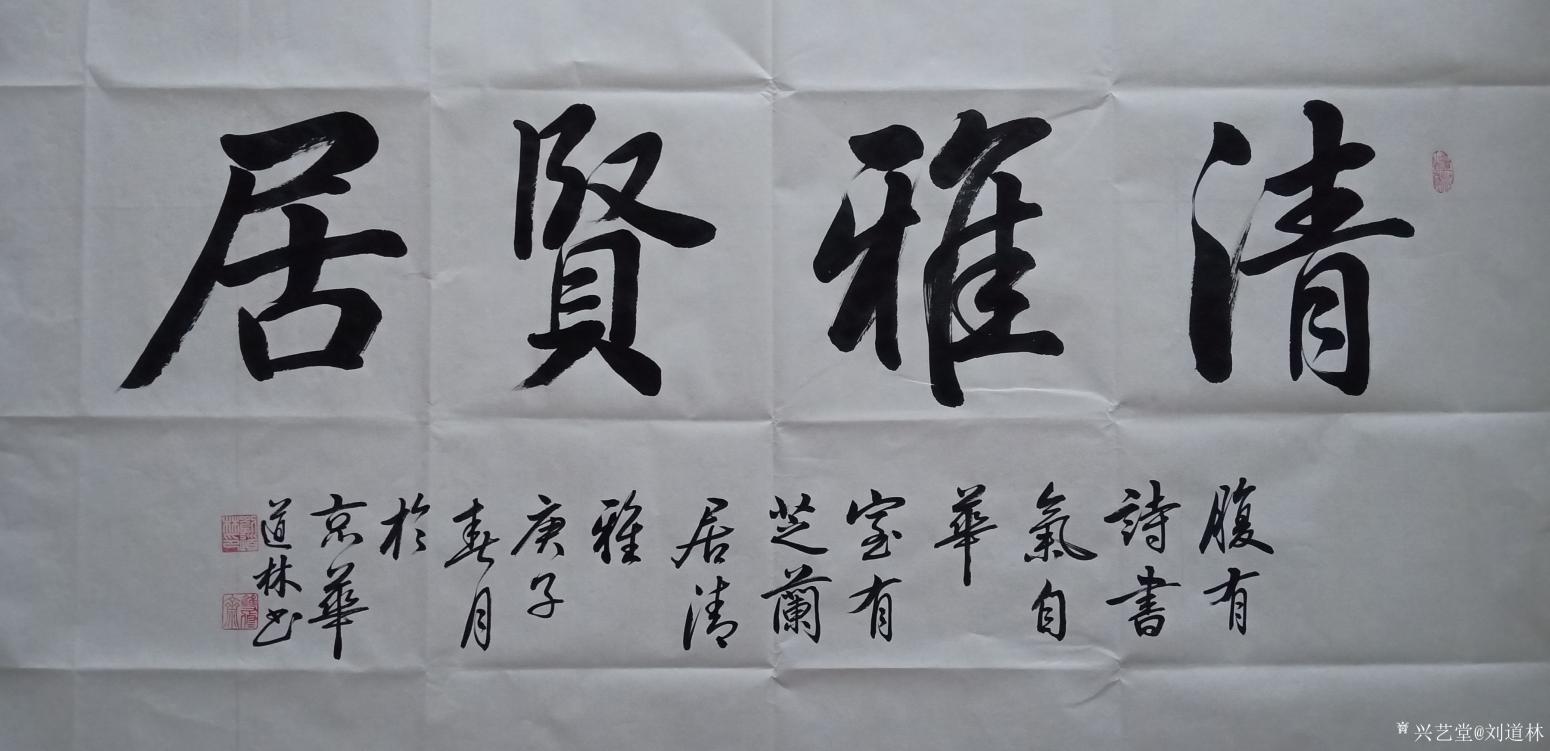 清雅賢居
腹有
詩書
氣自
華
室有
芝蘭
居清
雅
庚子
春月
於
京華
道林书
兴艺堂@刘道林